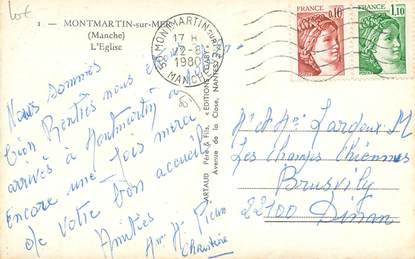 Lot
1 - MONTMARTIN-sur-MER
(Manche)
L'Eglise
50 MONTMARTIN sur MER
17 H
22-8
1980
MANCHE
0.10
FRANCE
1,10
FRANCE
ARTAUD Père & Fils, "EDITIONS GABY"
Avenue de la Close, NANTES
Nous sommes
bien Rentrés nous
arrivés à Montmartin
encore une fois merci
de votre bon accueil
Amitiés
Mme M. Pierre
Christine
Mr & Mme Lardeux M
Les Champs Chiennes
Brusvily
22100 Dinan